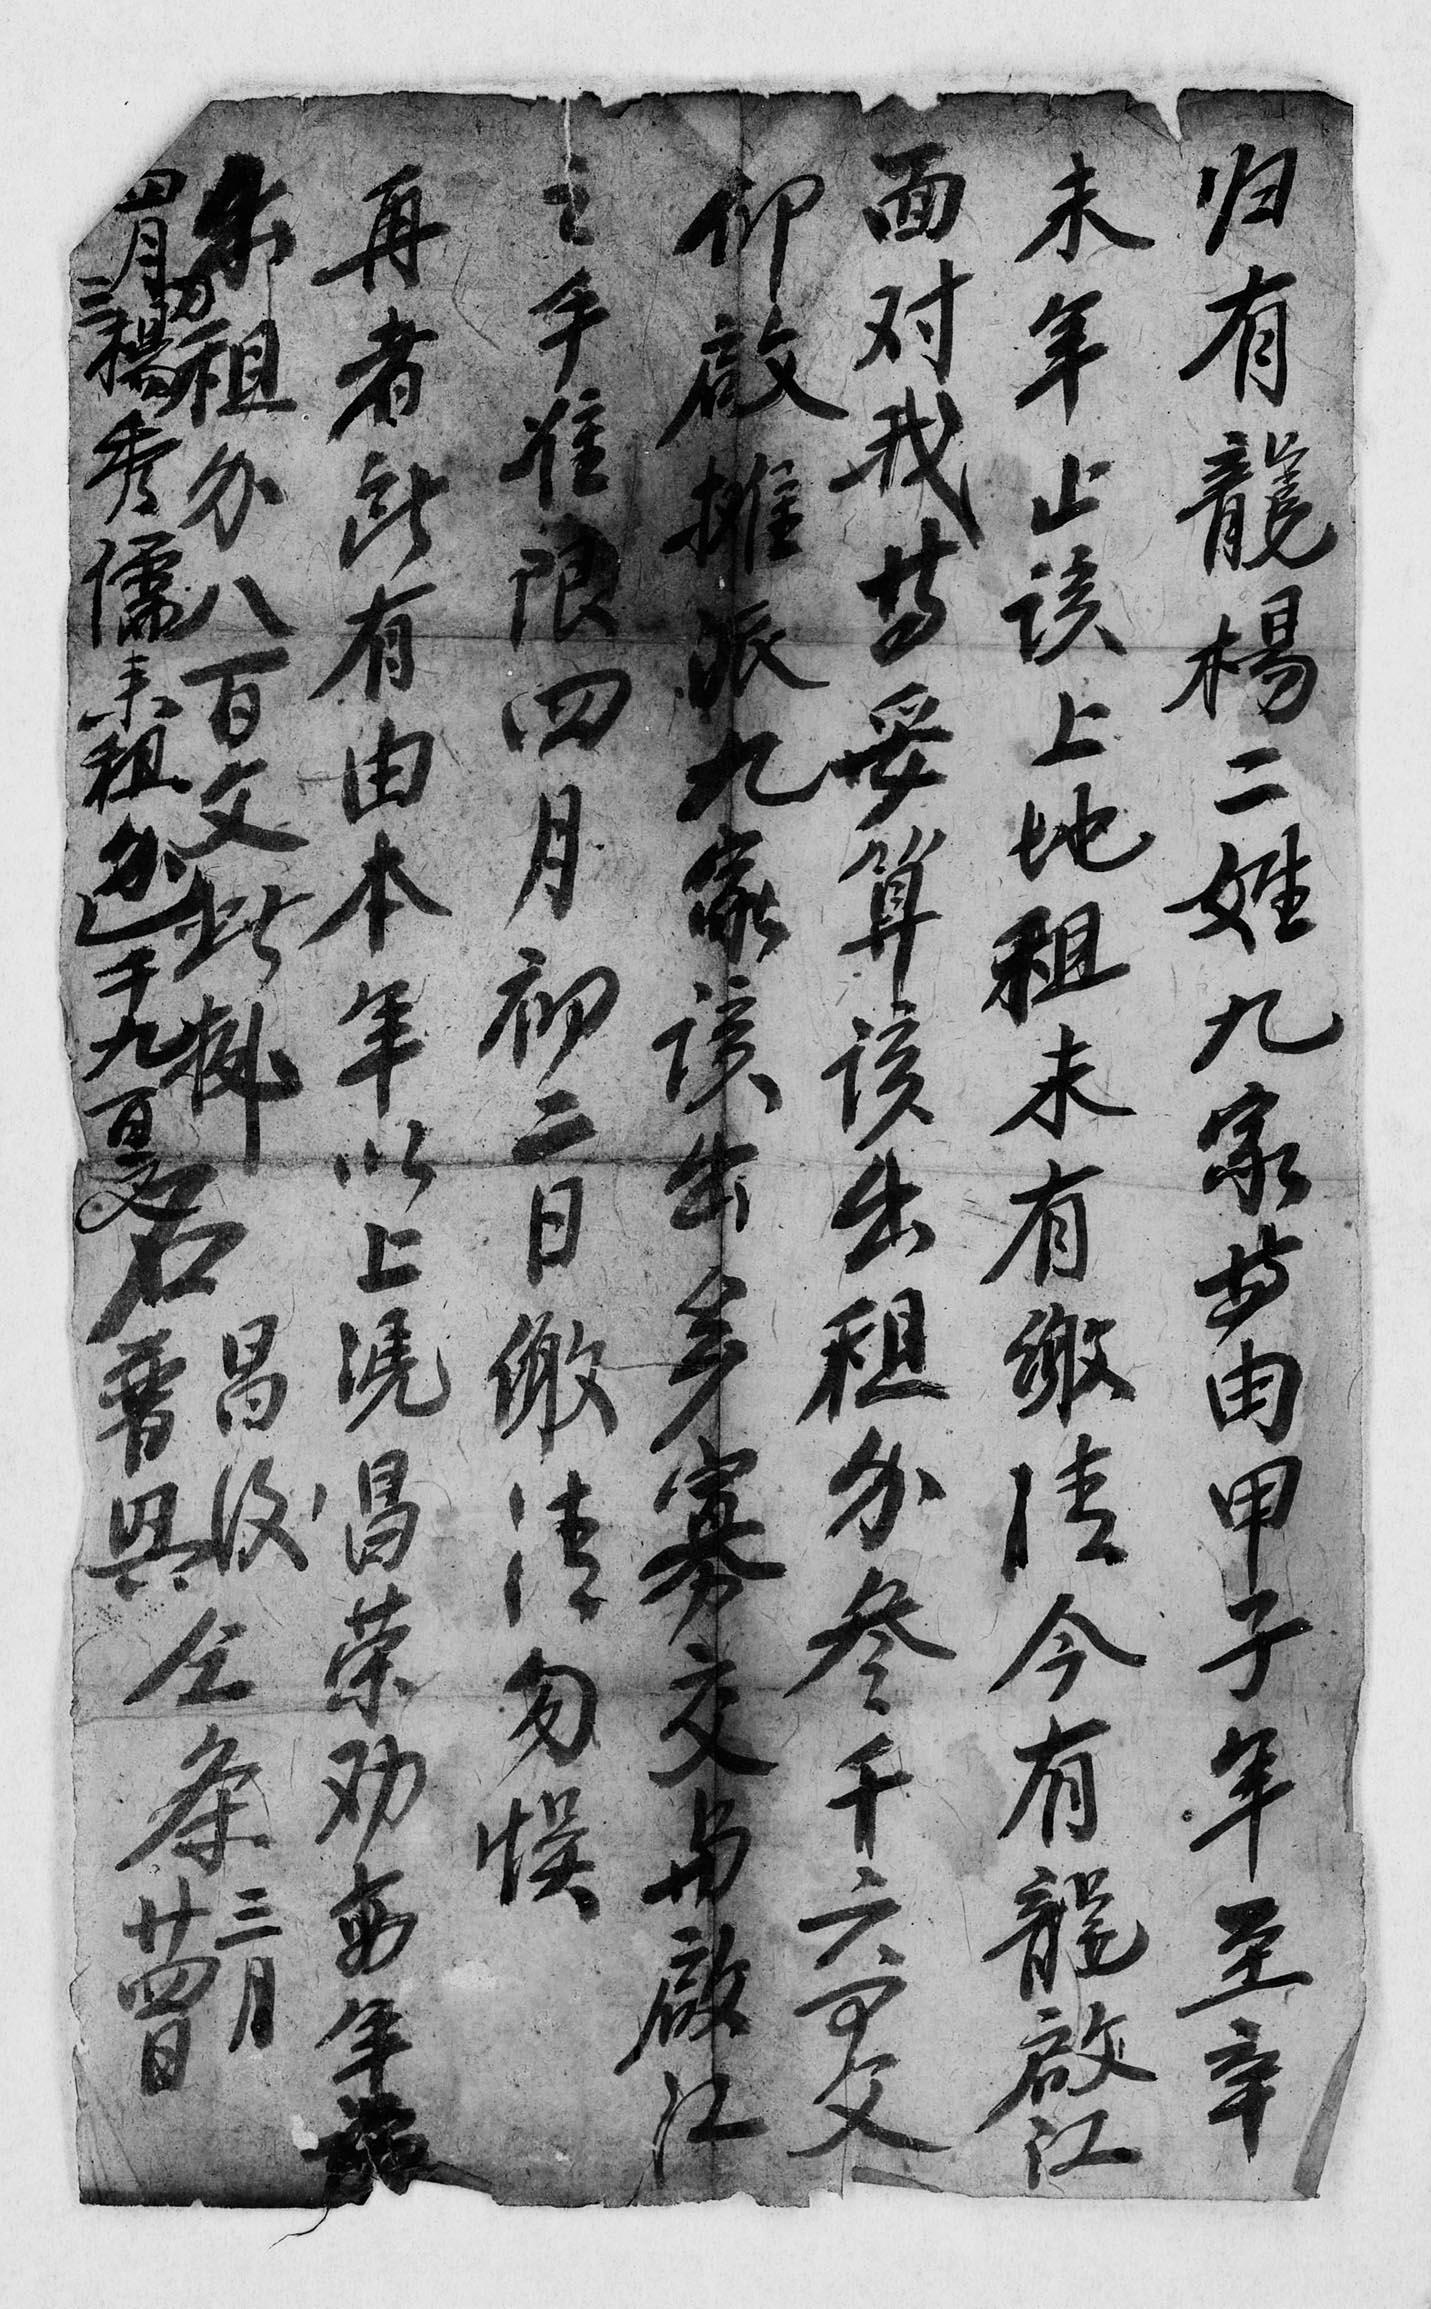 归有龍楊二姓九家苗由甲子年至辛
未年止该上地租未有缴清今有龍啟江
面对我苗妥算该出租分叁千六百文
仰啟攤派九家该出多寡交与啟江
之手准限四月初二日缴清勿悮
再者所有由本年以上浼昌荣劝每年
租分八百文此拠
昌
石晋興
仝条
三月
廿四日
四月初三楊秀儒来租分乙千九百文